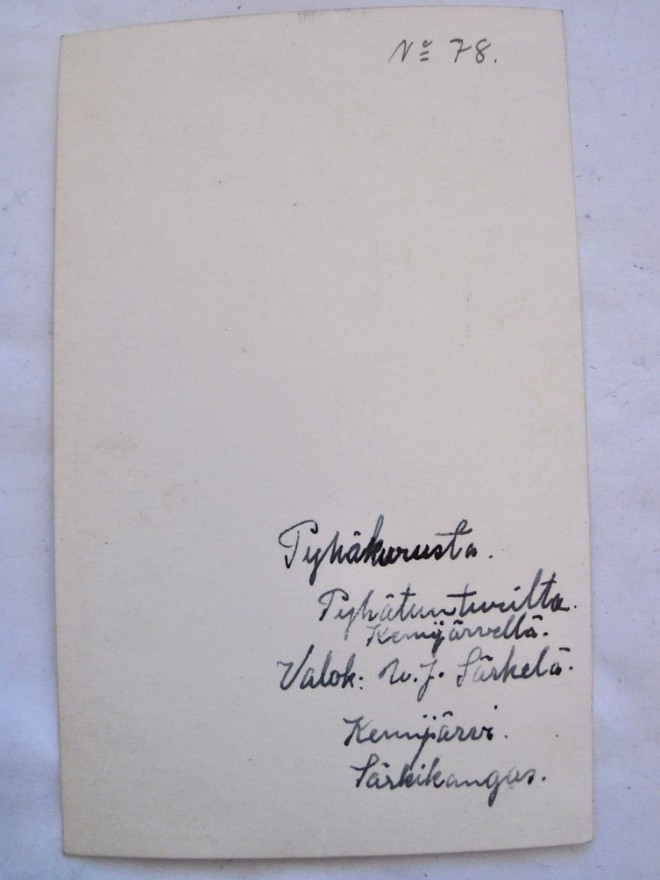 Nº 78.
Pyhäkurusta.
Pyhätunturilta.
Kemijärveltä.
Valok: W. J. Särkelä.
Kemijärvi.
Särkikangas.